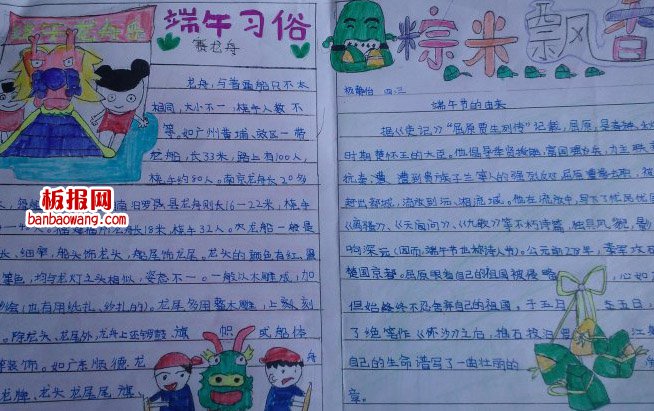 端午习俗
赛龙舟
龙舟,与普通船只不太
相同,大小不一,桡手人数不
等。如广州黄埔、郊区一带
龙船,长33米,路上有100人,
桡手约80人。南京龙舟长20多
汨罗县龙舟则长16-22米,桡手
龙舟长18米,桡手32人。龙船一般是
长、细窄,船头饰龙头,船尾饰龙尾。龙头的颜色有红、
等色,均与龙灯之头相似,姿态不一。一般以木雕成,加
(也有用纸扎、纱扎的)。龙尾多用整木雕,上刻
除龙头、龙尾外,龙舟上还有锣鼓、旗帜或船体
等装饰。如广东顺德龙舟
龙牌、龙头龙尾旗、
粽米飘香
四.三
端午节的由来
据《史记》“屈原贾生列传”记载,屈原,是春秋
时期楚怀王的大臣。他倡导举贤授能,富国强兵,力主联
抗秦,遭到贵族子兰等人的强烈反对,屈原遭馋去职,被
赶出都城,流放到沅、湘流域。他在流放中,写下了忧民忧
《离骚》、《天问》、《九歌》等不朽诗篇,独具风貌,影
响深远(因而,端午节也称诗人节)。公元前278年,秦军攻
楚国京都。屈原眼看自己的祖国被侵略,心如
但始终不忍舍弃自己的祖国,于五月五日,
了绝笔作《怀沙》之后,抱石投汨罗江
自己的生命谱写了一曲壮丽的
章。
板报网
banbaowang.com